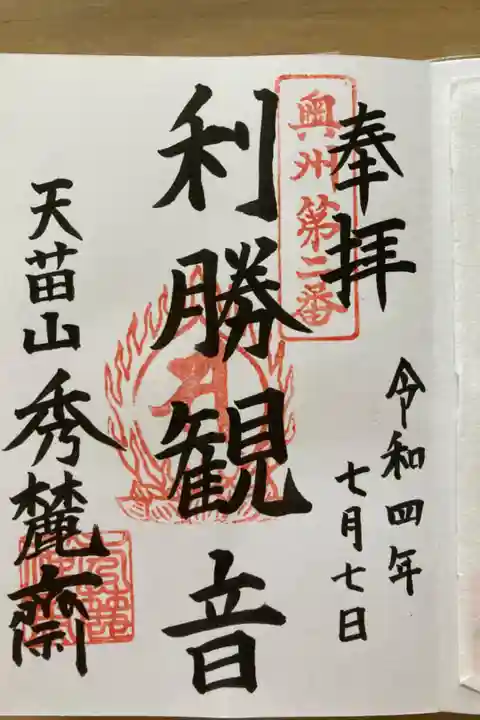 奉拝
奥州第二番
令和四年
七月七日
利勝観音
天苗山 秀麓齋